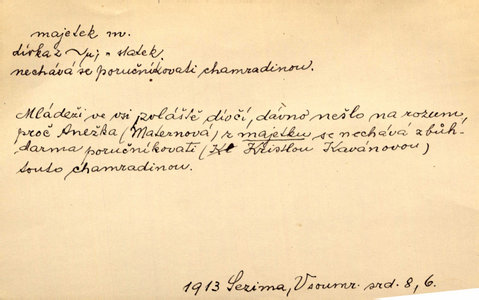 majetek m.
dívka z m; = statek.
nechává se poručníkovati chamradinou.
Mládeži ve vsi zvláště dívčí, dávno nešlo na rozum,
proč Anežka (Maternová) z majetku se nechává zbůh-
darma poručníkovati (Kristlou Kavánovou)
touto chamradinou.
1913 Sezima, Vsoumr. srd. 8, 6.